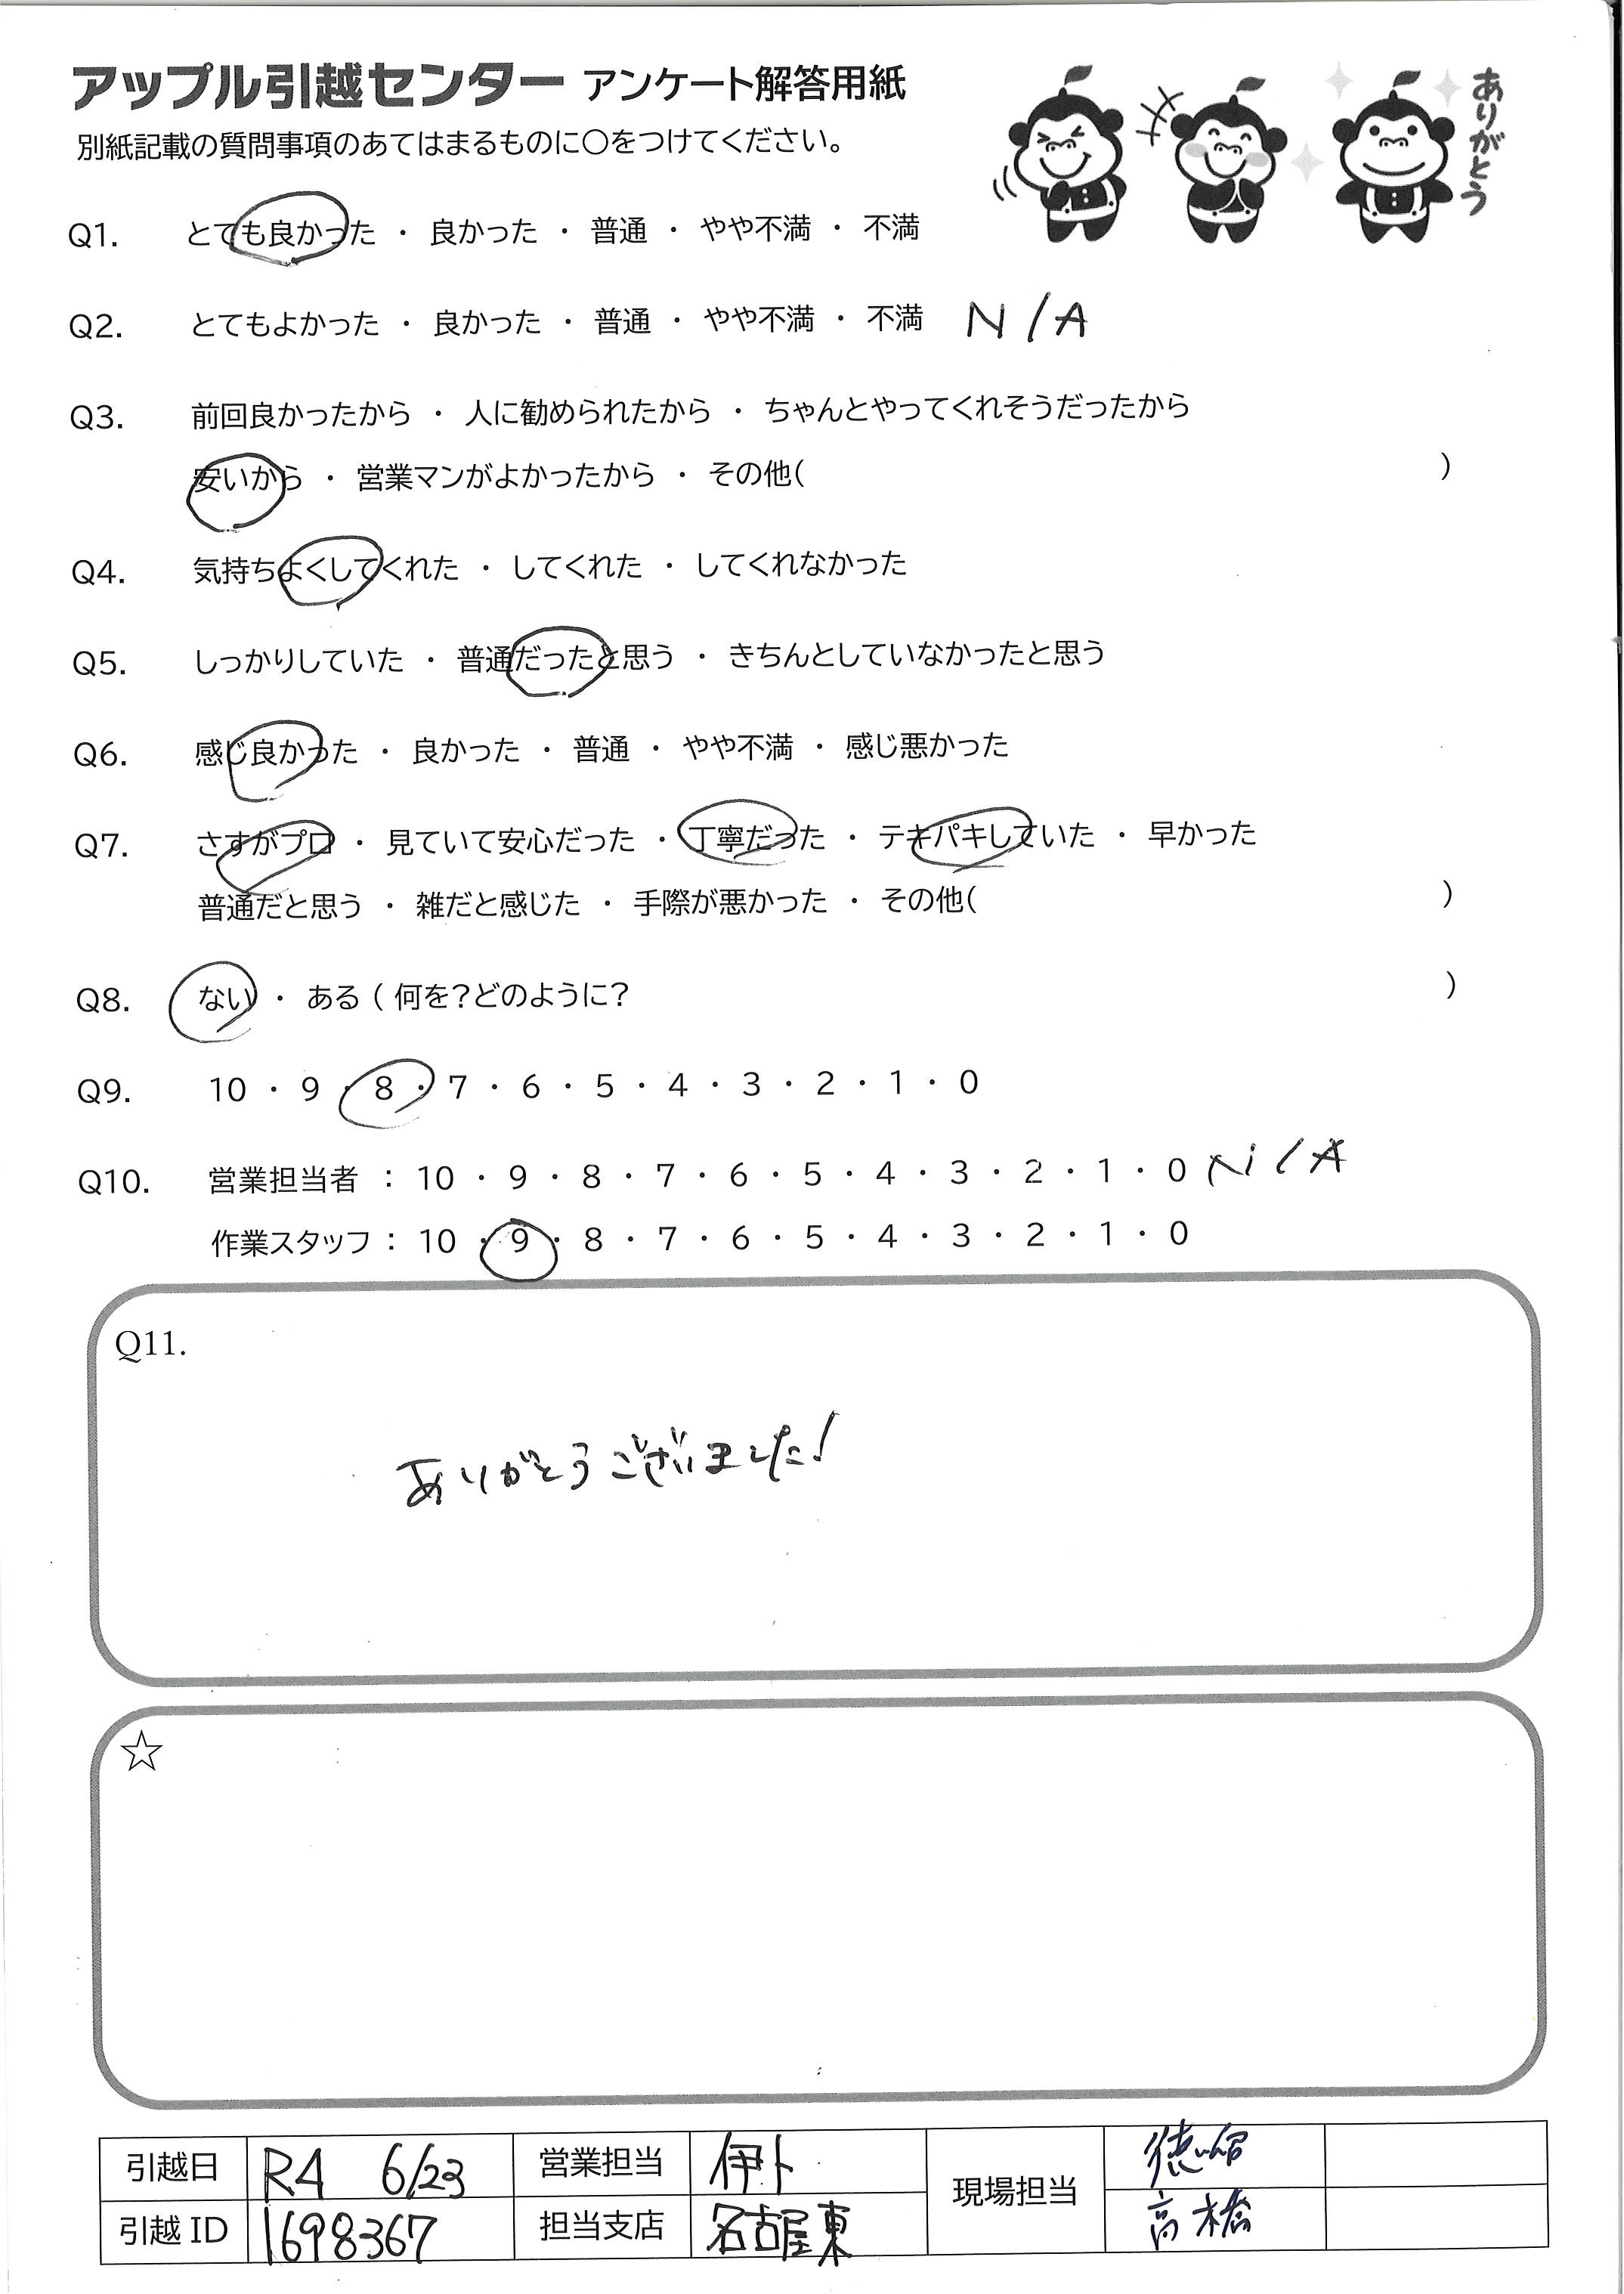 アップル引越センター アンケート解答用紙
別紙記載の質問事項のあてはまるものに○をつけてください。
ありがとう
Q1. とても良かった ・ 良かった ・ 普通 ・ やや不満 ・ 不満
Q2. とてもよかった ・ 良かった ・ 普通 ・ やや不満 ・ 不満 N/A
Q3. 前回良かったから ・ 人に勧められたから ・ ちゃんとやってくれそうだったから
安いから ・ 営業マンがよかったから ・ その他( )
Q4. 気持ちよくしてくれた ・ してくれた ・ してくれなかった
Q5. しっかりしていた ・ 普通だったと思う ・ きちんとしていなかったと思う
Q6. 感じ良かった ・ 良かった ・ 普通 ・ やや不満 ・ 感じ悪かった
Q7. さすがプロ ・ 見ていて安心だった ・ 丁寧だった ・ テキパキしていた ・ 早かった
普通だと思う ・ 雑だと感じた ・ 手際が悪かった ・ その他( )
Q8. ない ・ ある ( 何を?どのように? )
Q9. 10 ・ 9 ・ 8 ・ 7 ・ 6 ・ 5 ・ 4 ・ 3 ・ 2 ・ 1 ・ 0
Q10. 営業担当者 : 10 ・ 9 ・ 8 ・ 7 ・ 6 ・ 5 ・ 4 ・ 3 ・ 2 ・ 1 ・ 0 N/A
作業スタッフ : 10 ・ 9 ・ 8 ・ 7 ・ 6 ・ 5 ・ 4 ・ 3 ・ 2 ・ 1 ・ 0
Q11.
ありがとうございました!
☆
引越日 R4 6/23 営業担当 伊ト 現場担当
引越ID 1698367 担当支店 名古屋東 高橋